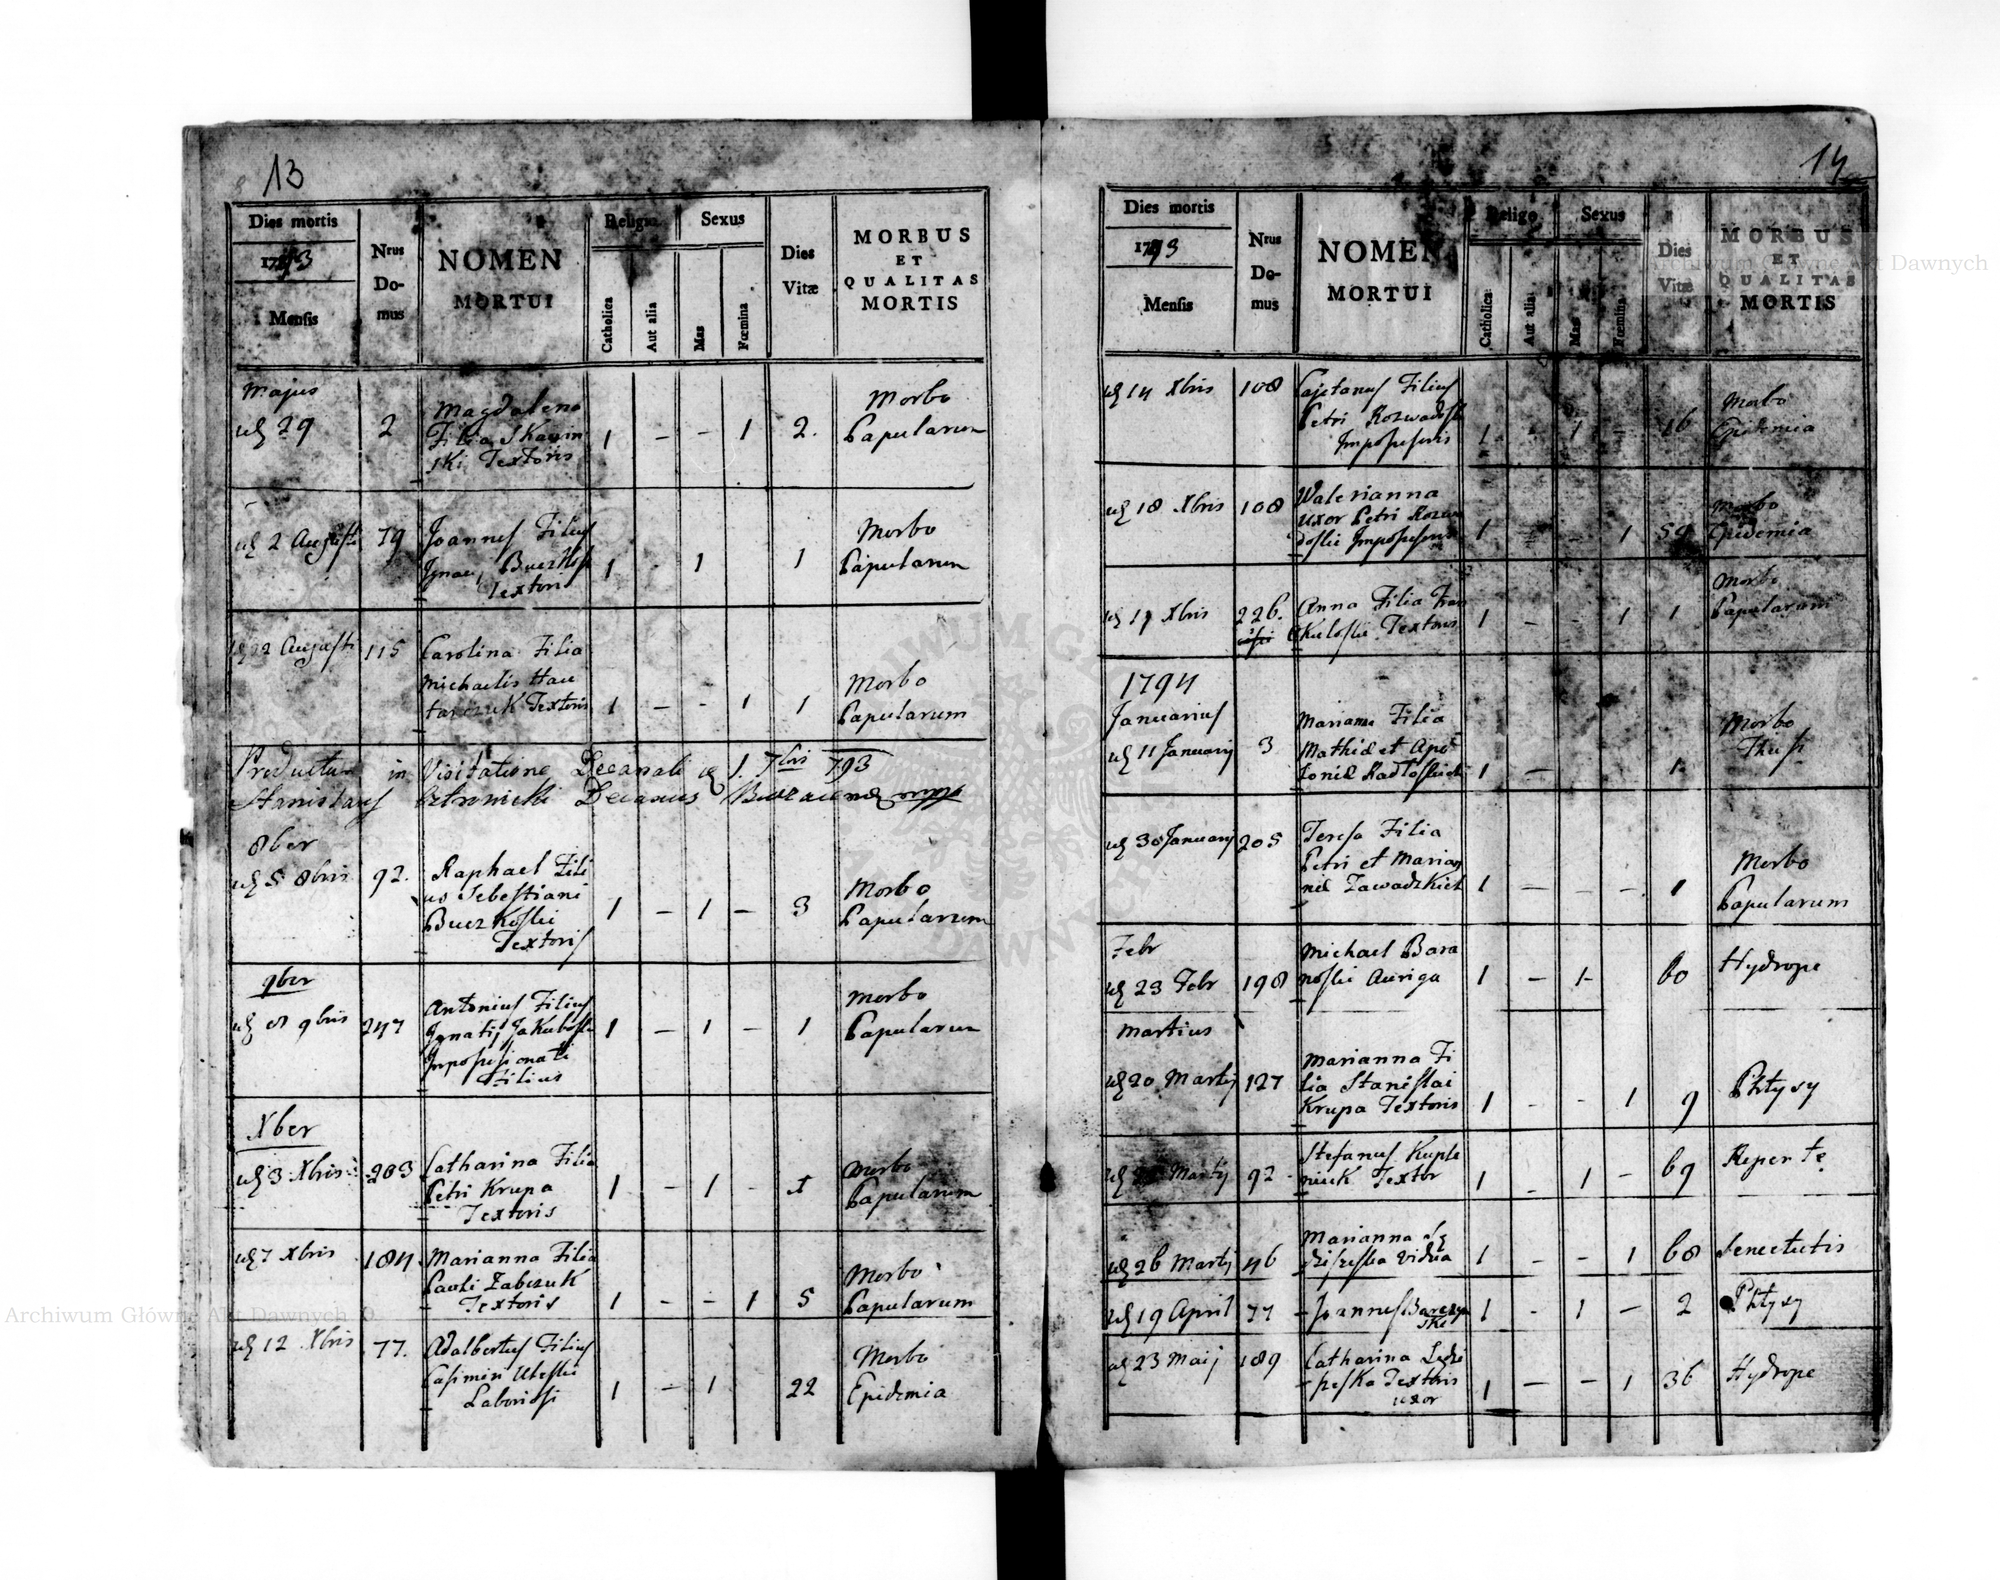 13
Dies mortis
1793
Mensis
Nrus
Do-
mus
NOMEN
MORTUI
Religio
Catholica
Aut alia
Sexus
Mas
Fœmina
Dies
Vitæ
MORBUS
ET
QUALITAS
MORTIS
Majus
29 2 Magdalena
Filia Skawin
ski Textoris 1 - - 1 2.
Morbo
Papularum
2 Augusti 79 Joannes Filius
Textoris 1 - 1 1
Morbo
Papularum
Augusti 115 Carolina Filia
Michaelis Hau
tarczuk Textoris 1 - - 1 1
Morbo
Papularum
Productum in Visitatione Decanali 1. 7bris 793
Stanislaus Decanus
8ber
5 8bris 92. Raphael Fili
us Sebestiani
Buczkoski
Textoris 1 - 1 - 3
Morbo
Papularum
9ber
8 9bris 247 Antonius Filius
Ignatij Jakuboski
Impossesionati
Filius 1 - 1 - 1
Morbo
Papularum
Xber
3 Xbris 203 Catharina Filia
Petri Krupa
Textoris 1 - 1 -
Morbo
Papularum
7 Xbris 184 Marianna Filia
Pauli Zabczuk
Textoris 1 - - 1 5
Morbo
Papularum
12 Xbris 77. Adalbertus Filius
Casimiri
Laboriosi 1 - 1 22
Morbo
Epidemia
14
Dies mortis
1793
Mensis
Nrus
Do-
mus
NOMEN
MORTUI
Religo
Catholica
Aut alia
Sexus
Mas
Fœmina
Dies
Vitæ
MORBUS
ET
QUALITAS
MORTIS
14 Xbris 108 Cajetanus Filius
Petri Rozwadoski
1 - 1 16
Morbo
Epidemia
18 Xbris 108 Walerianna
uxor Petri Rozwa
doski 1 1
Morbo
Epidemia
Xbris 226. Anna Filia
Textoris 1 - 1 1
Morbo
Papularum
1794
Januarius
11 Januarij 3 Marianna Filia
Mathiæ et Apo
loniæ 1 - 1
Morbo
30 Januarij 205 Teresa Filia
Petri et Marian
næ Zawadzkich 1 - - - 1
Morbo
Papularum
Febr
23 Febr 198 Michael Bara
noski Auriga 1 - 1 - 60
Hydrope
Martius
20 Martij 127 Marianna Fi
lia Stanislai
Krupa Textoris 1 - - 1 9
Phtysy
Martij 92 Stefanus
Textor 1 - 1 - 69
Repente
26 Martij 46 Marianna
vidua 1 - - 1 68
Senectutis
19 April 77 Joannes
1 - 1 - 2
Phtysy
23 Maij 189 Catharina
Textoris
uxor 1 - - 1 36
Hydrope
Archiwum Główne Akt Dawnych
Archiwum Główne Akt Dawnych